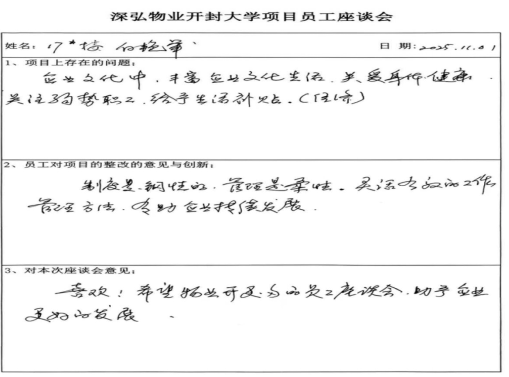 深弘物业开封大学项目员工座谈会
姓名：17#楼 日期：2025.11.01
1、项目上存在的问题：
企业文化中，丰富企业文化生活，关爱身体健康，
关注弱势职工，给予生活补贴。
2、员工对项目的整改的意见与创新：
制度是钢性的，管理是柔性。灵活有效的工作
管理方法，有助企业持续发展.
3、对本次座谈会意见：
喜欢！希望物业开更多的员工座谈会，助于企业
更好的发展